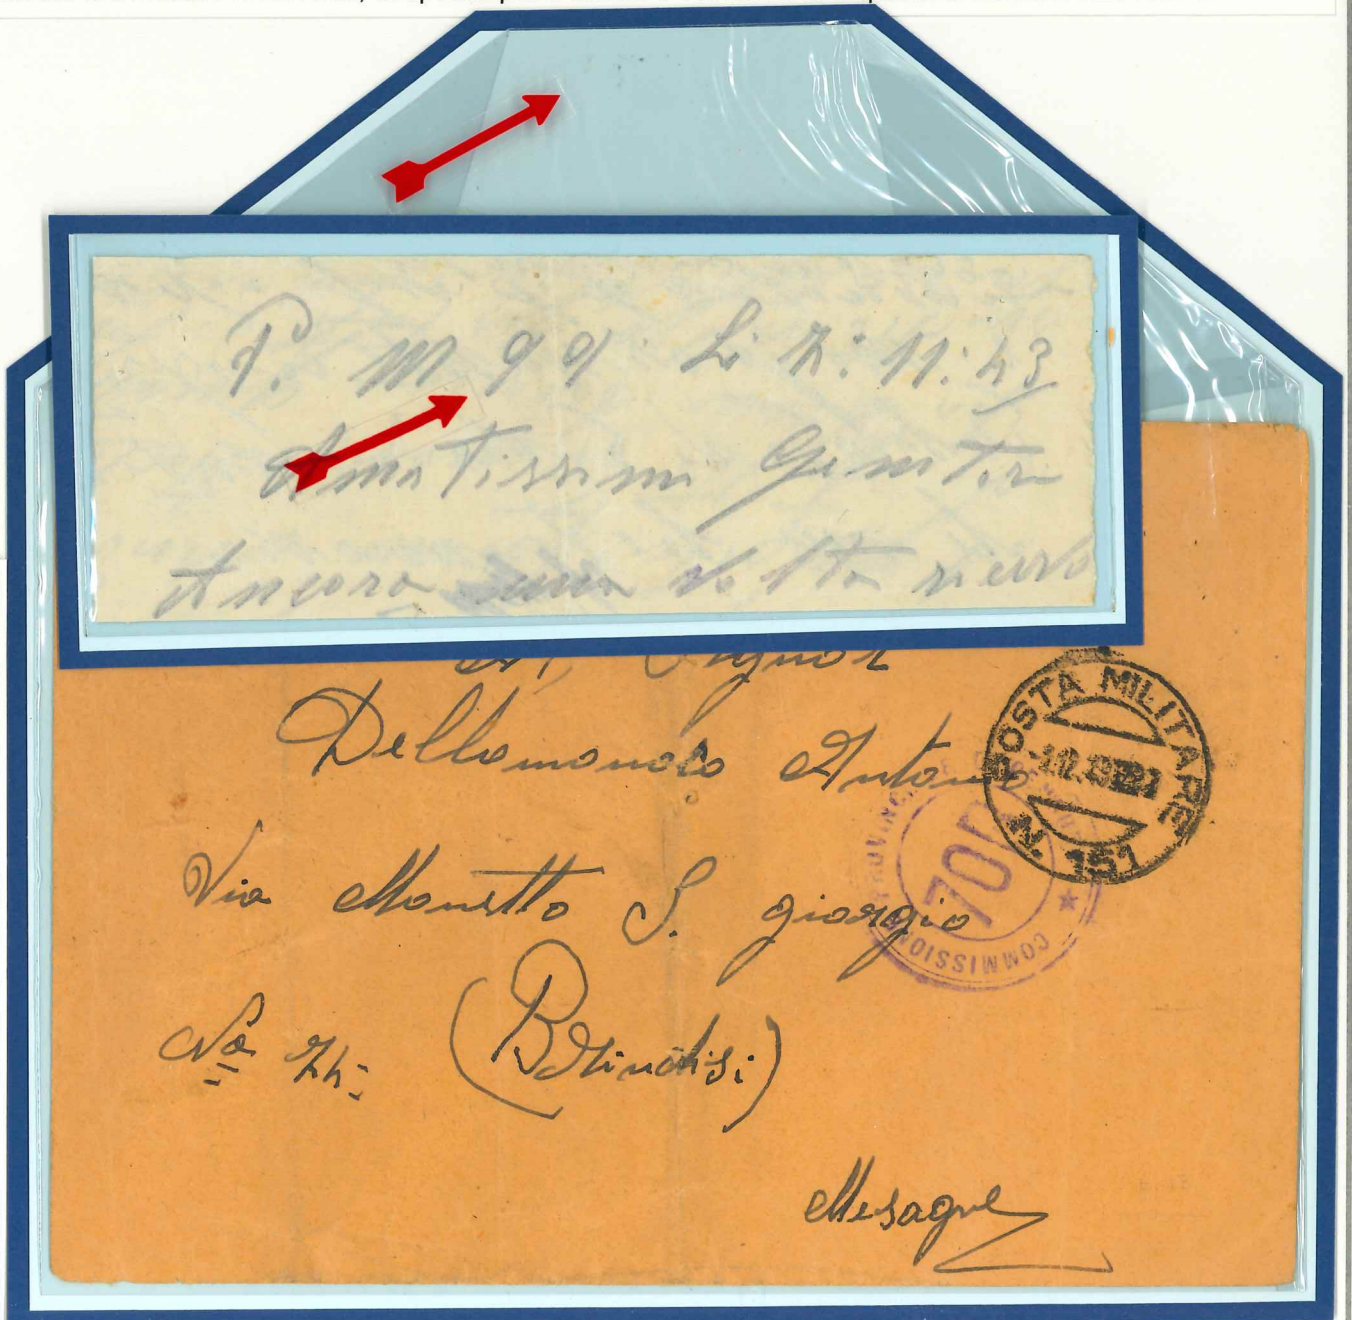 P. M 99. Li 7: 11: 43
Amatissimi Genitori
Ancora una volta ricevo
Signor
Dellomonaco Antonio
Via Monetto S. giorgio
No 74:
(Brindisi)
Mesagne
POSTA MILITARE
N. 151
COMMISSIONE PROVINCIALE
70R